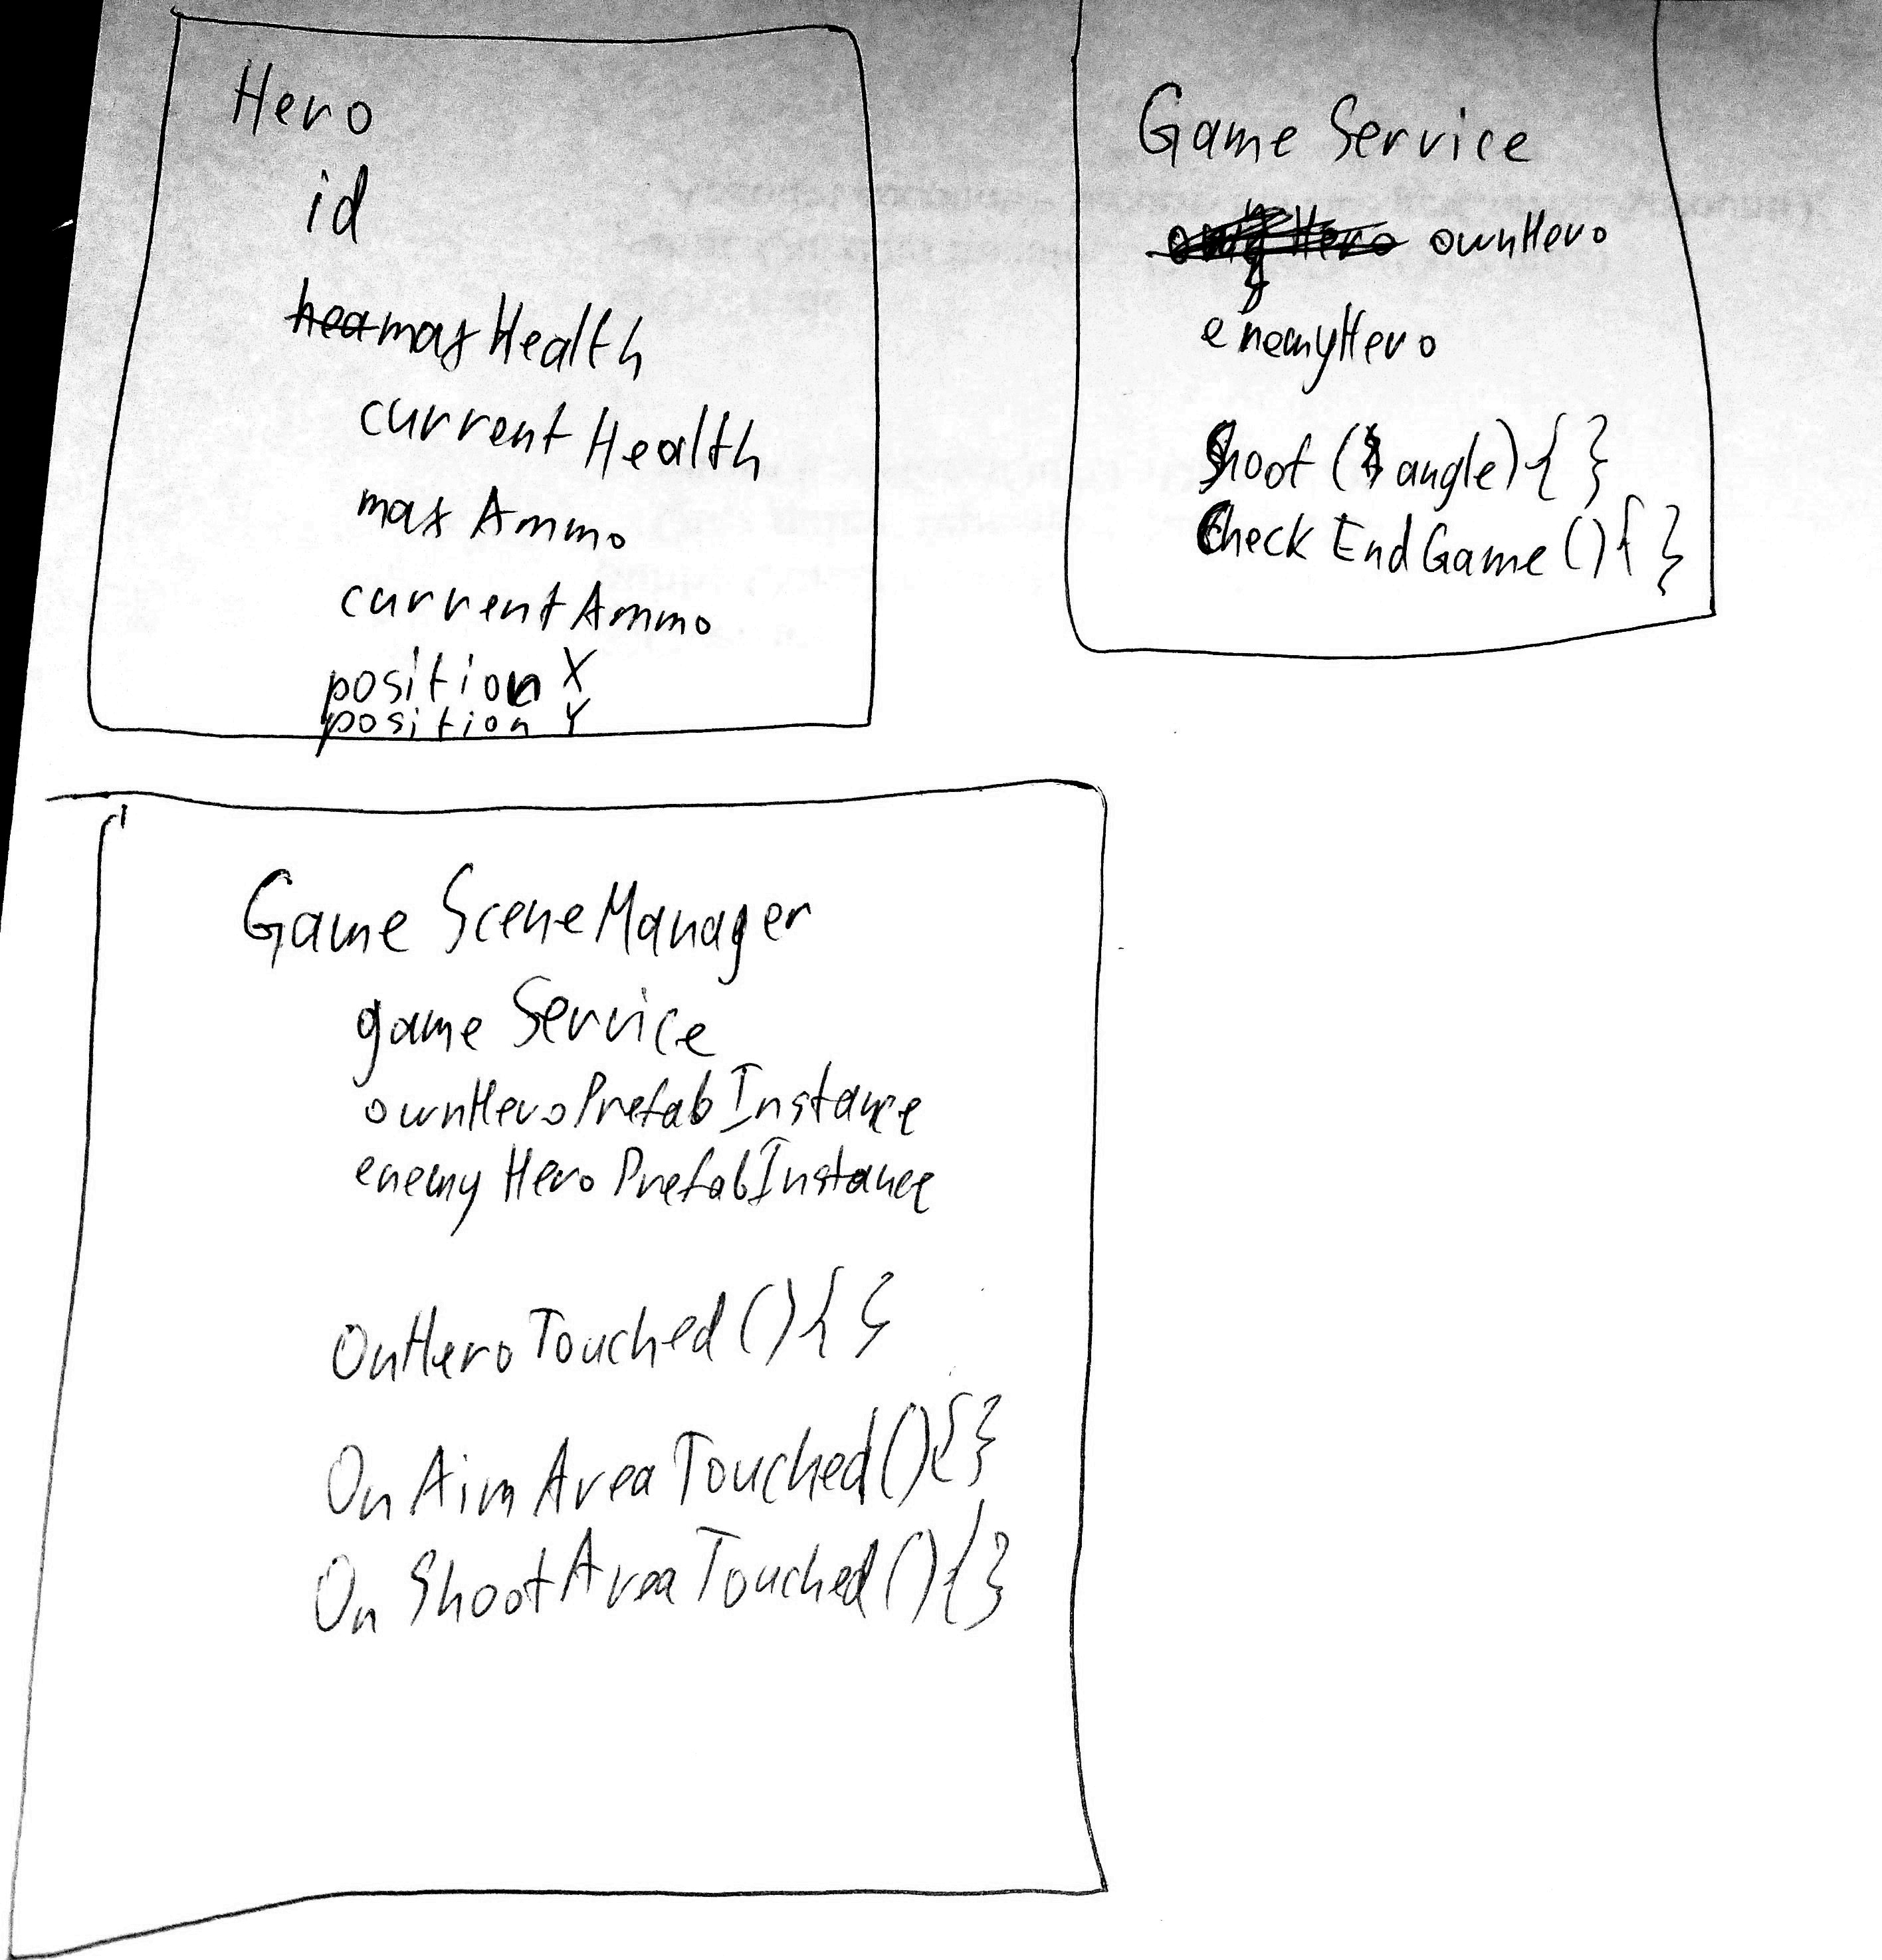 Hero
id
hea maxHealth
current Health
max Ammo
current Ammo
position X
position Y
Game Service
ownHero
enemyHero
Shoot (angle) { }
Check End Game () { }
Game Scene Manager
game Service
ownHeroPrefab Instance
enemy Hero PrefabInstance
OnHero Touched () { }
On Aim Area Touched () { }
On Shoot Area Touched () { }